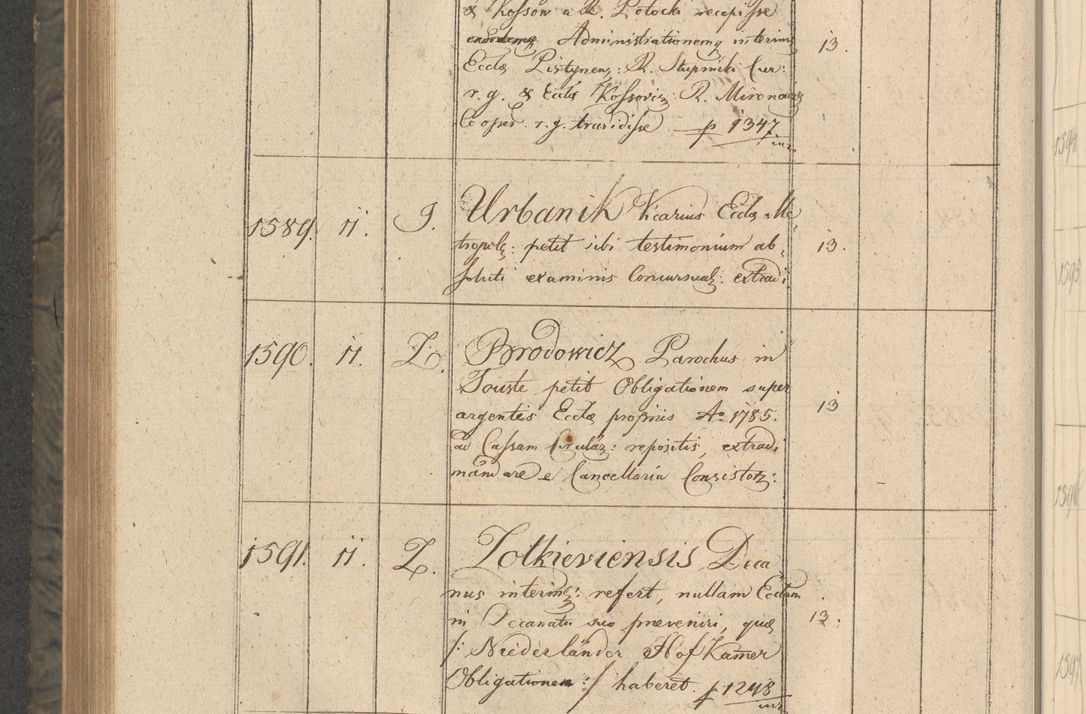 & Kossow a R. Potocki recepisse
Administrationemq interim 13.
Eccla Pistynenz: R. Stupnicki Cur:
r. g. & Eccla Kossoviz: R. Mironowiz
Cooper. r. g. tradidisse p 1347
1589. 11. I. Urbanik Vicarius Eccla Me
tropolz: petit sibi testimonium ab- 13.
soluti examinis Concursualz: extradi.
1590. 11. Z. Brodowicz Parochus in
Touste petit Obligationem super
argenteis Eccla propriis Ao 1785. 13
ad Cassam Circularz: repositis, extradi
mandare e Cancellaria Consistorz:
1591. 11. Z. Zolkieviensis Deca
nus interimz: refert, nullam Ecclam
in Decanatu suo preveniri, quae 13.
/: Niederländer Hof Kamer
Obligationem :/ haberet. p 1248